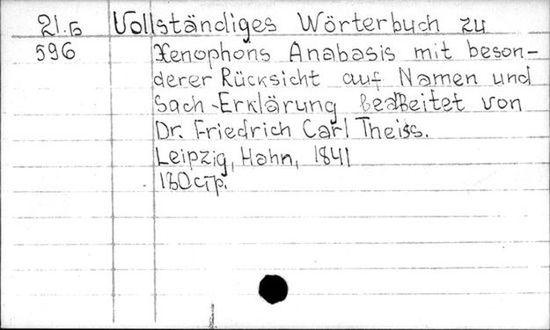 21.б Vollständiges Wörterbuch zu
596 Xenophons Anabasis mit beson-
derer Rücksicht auf Namen und
Sach-Erklärung beaRbeitet von
Dr. Friedrich Carl Theiss.
Leipzig, Hahn, 1841
180стр.